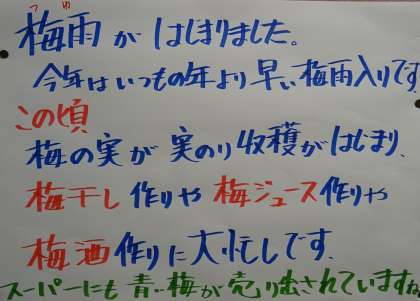 つゆ
梅雨がはじまりました。
今年はいつもの年より早い梅雨入りです
この頃
梅の実が実のり収穫がはじまり、
梅干し作りや梅ジュース作りや
梅酒作りに大忙しです、
スーパーにも青い梅が売り出されています。